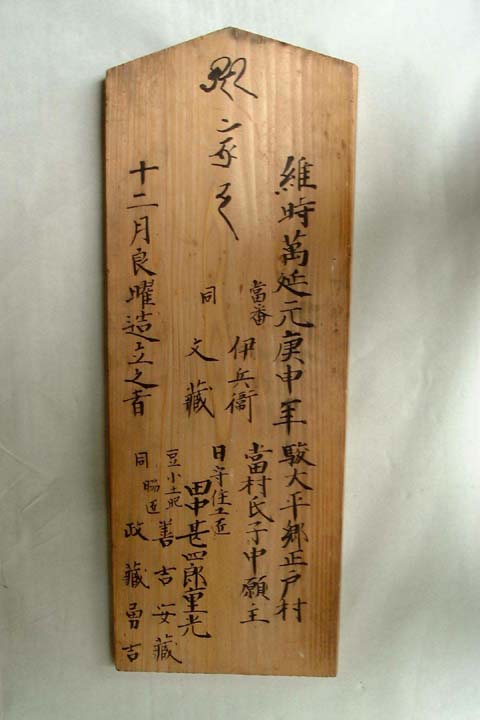 維時萬延元庚申年駿大平郷正戸村
當村氏子中願主
當番 伊兵衞
同 文藏
日守住工匠
田中甚四郎重光
豆小土肥 善吉 安藏
同 脇匠 政藏 勇吉
十二月良曜造立之者